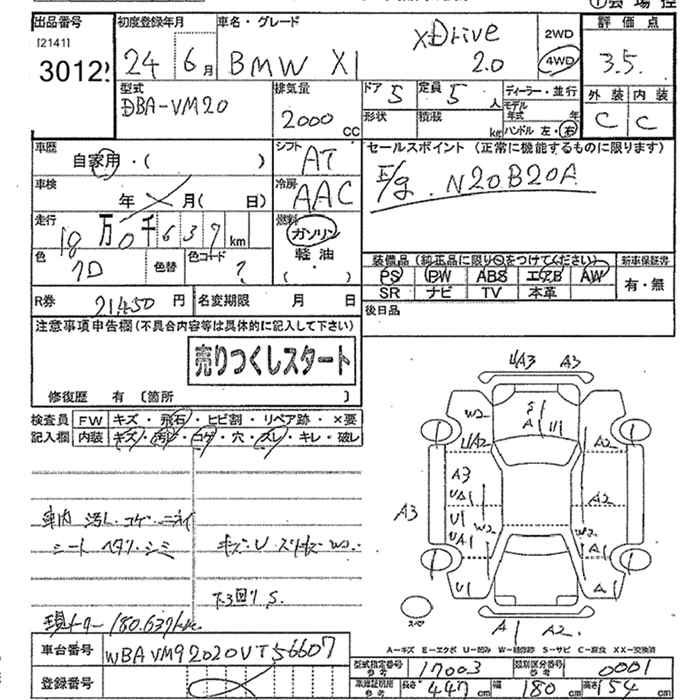 出品番号 初度登録年月 車名・グレード 評価点
[2141] 3012
24年 6月 BMW X1 xDrive 2.0 2WD 4WD 3.5
型式 排気量 ドア 定員 ディーラー・並行 外装 内装
DBA-VM20 2000 CC 5 5人 モデル年式 年 C C
形状 積載 kg ハンドル 左・右
車歴 自家用・( ) シフト AT セールスポイント (正常に機能するものに限ります)
車検 年 月( 日) 冷房 AAC E/g. N20B20A
走行 18万0千637km 燃料 ガソリン
軽油
色 色替 色コード ? ( ・ )
装備品 (純正品に限り○をつけてください) 新車保証書
PS PW ABS エアB AW 有・無
SR ナビ TV 本革
R券 21450円 名変期限 月 日 後日品
注意事項申告欄 (不具合内容等は具体的に記入して下さい)
売りつくしスタート
修復歴 有 〔箇所 〕
検査員 FW キズ・飛石・ヒビ割・リペア跡・×要
記入欄 内装 キズ・汚れ・コゲ・穴・スレ・キレ・破レ
U/A3 A3
W2 A U1
U/A2 A2
A3 UA1 A2
A3 U1 W2 W2
UA1 A1
U1 A1
A1 A2
スペア
車内 汚レ・コゲ・ニオイ
シート ヘタリ・シミ
下回り S.
現メーター 180.637km
A－キズ E－エクボ U－凹み W－補修跡 S－サビ C－腐食 XX－交換済
車台番号 WBAVM92020VT56607
登録番号
型式指定番号 参考 17003 類別区分番号 参考 0001
車庫証明用 参考 長さ 447cm 幅 180cm 高さ 154cm